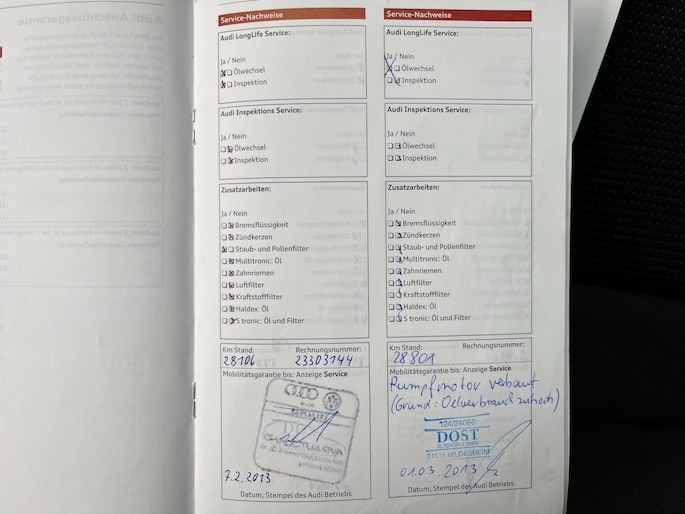 Service-Nachweise
Audi LongLife Service:
Ja / Nein
Ölwechsel
Inspektion
Audi Inspektions Service:
Ja / Nein
Ölwechsel
Inspektion
Zusatzarbeiten:
Ja / Nein
Bremsflüssigkeit
Zündkerzen
Staub- und Pollenfilter
Multitronic: Öl
Zahnriemen
Luftfilter
Kraftstofffilter
Haldex: Öl
S tronic: Öl und Filter
Km Stand: Rechnungsnummer:
28106 23303144
Mobilitätsgarantie bis: Anzeige Service
7.2.2013
Datum, Stempel des Audi Betriebs
Service-Nachweise
Audi LongLife Service:
Ja / Nein
Ölwechsel
Inspektion
Audi Inspektions Service:
Ja / Nein
Ölwechsel
Inspektion
Zusatzarbeiten:
Ja / Nein
Bremsflüssigkeit
Zündkerzen
Staub- und Pollenfilter
Multitronic: Öl
Zahnriemen
Luftfilter
Kraftstofffilter
Haldex: Öl
S tronic: Öl und Filter
Km Stand: Rechnungsnummer:
28801
Mobilitätsgarantie bis: Anzeige Service
Rumpfmotor verbaut
(Grund: Oelverbrand zu hoch)
124/24066
DOST
HILDESHEIM
01.03.2013
Datum, Stempel des Audi Betriebs